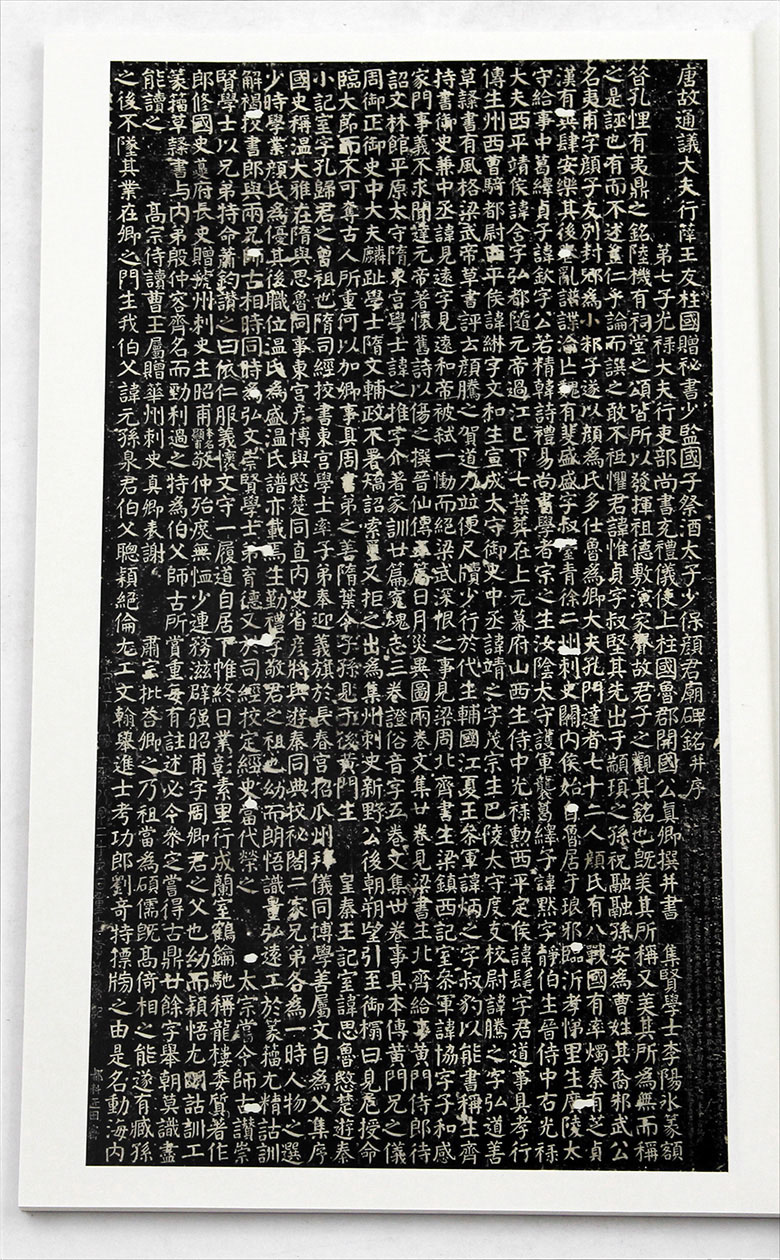 唐故通議大夫行薛王友柱國贈秘書少監國子祭酒太子少保顏君廟碑銘并序
第七子光祿大夫行吏部尚書充禮儀使上柱國魯郡開國公真卿撰并書 集賢學士李陽冰篆額
昝孔悝有夷鼎之銘陸機有祠堂之頌皆所以發揮祖德敷演家聲故君子之觀其銘也既美其所稱又美其所為無而稱
之是誣也有而不述豈仁乎論而譔之敢不祗懼君諱惟貞字叔堅其先出于顓頊之孫祝融融孫安為曹姓其裔邾武公
名夷甫字顏子友別封郳為小邾子遂以顏為氏多仕魯為卿大夫孔門達者七十二人顏氏有八戰國有率燭秦有芝貞
漢有異肆安樂其後喪亂譜諜淪亡魏有斐盛盛字叔臺青徐二州刺史關內侯始自魯居于琅邪臨沂孝悌里生廣陵太
守給事中葛繹貞子諱欽字公若精韓詩禮易尚書學者宗之生汝陰太守護軍襲葛繹子諱默字靜伯生晉侍中右光祿
大夫西平靖侯諱含字弘都隨元帝過江已下七葉葬在上元幕府山西生侍中光祿勳西平定侯諱髦字君道事具孝行
傳生州西曹騎都尉西平侯諱綝字文和生宣成太守御史中丞諱靖之字茂宗生巴陵太守度支校尉諱騰之字弘道善
草隸書有風格梁武帝草書評云顏騰之賀道力並便尺牘少行於代生輔國江夏王參軍諱炳之字叔豹以能書稱生齊
持書御史兼中丞諱見遠字見遠和帝被弒一慟而絕梁武深恨之事見梁周北齊書生梁鎮西記室參軍諱協字子和感
家門事義不求聞達元帝著懷舊詩以傷之撰晉仙傳五篇日月災異圖兩卷文集廿卷見梁書生北齊給事黃門侍郎待
詔文林館平原太守隋東宮學士諱之推字介著家訓廿篇冤魂志三卷證俗音字五卷文集卅卷事具本傳黃門兄之儀
周御正御史中大夫麟趾學士隋文輔政不署矯詔索璽又拒之出為集州刺史新野公後朝朔望引至御榻曰見危授命
臨大節而不可奪古人所重何以加卿事具周書弟之善隋葉令子孫見于後黃門生 皇秦王記室諱思魯愍楚遊秦
小記室字孔歸君之曾祖也隋司經校書東宮學士率子弟奉迎義旗於長春宮招瓜州拜儀同博學善屬文自為父集序
國史稱溫大雅在隋與思魯同事東宮彥博與愍楚同直內史省彥將與遊秦同典校秘閣二家兄弟各為一時人物之選
少時學業顏氏為優其後職位溫氏為盛溫氏譜亦載焉生勤禮字敬君之祖也幼而朗悟識量弘遠工於篆籀尤精詁訓
解褐校書郎與兩兄師古相時同時為弘文崇賢學士弟育德又於司經校定經史當代榮之 太宗嘗令師古讚崇
賢學士以兄弟特命蕭鈞讚之曰依仁服義懷文守一履道自居下帷終日業彰素里行成蘭室鶴鑰馳稱龍樓委質著作
郎修國史夔府長史贈虢州刺史生昭甫本名顯甫敬仲殆庶無恤少連務滋辟強昭甫字周卿君之父也幼而穎悟尤明詁訓工
篆籀草隸書與內弟殷仲容齊名而勁利過之特為伯父師古所賞重每有註述必令參定嘗得古鼎廿餘字舉朝莫識盡
能讀之 高宗侍讀曹王屬贈華州刺史真卿表謝 肅宗批荅卿之乃祖當為碩儒既高倚相之能遂有臧孫
之後不墜其業在卿之門生我伯父諱元孫泉君伯父聰穎絕倫尤工文翰舉進士考功郎劉奇特摽牓之由是名動海內